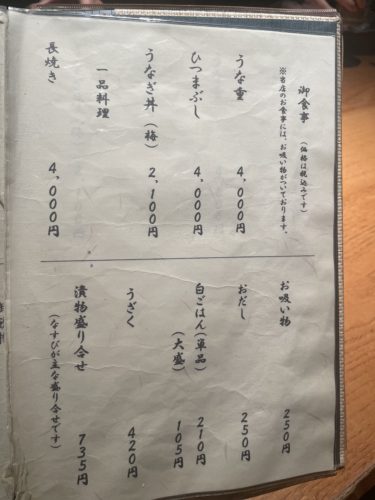 御食事 (価格は税込みです)
※当店のお食事には、お吸い物がついております。
うな重 4,000円
ひつまぶし 4,000円
うなぎ丼(梅) 2,100円
一品料理
長焼き 4,000円
お吸い物 250円
おだし 250円
白ごはん(単品) 210円
(大盛) 105円
うざく 420円
漬物盛り合せ 735円
(なすびが主な盛り合せです)